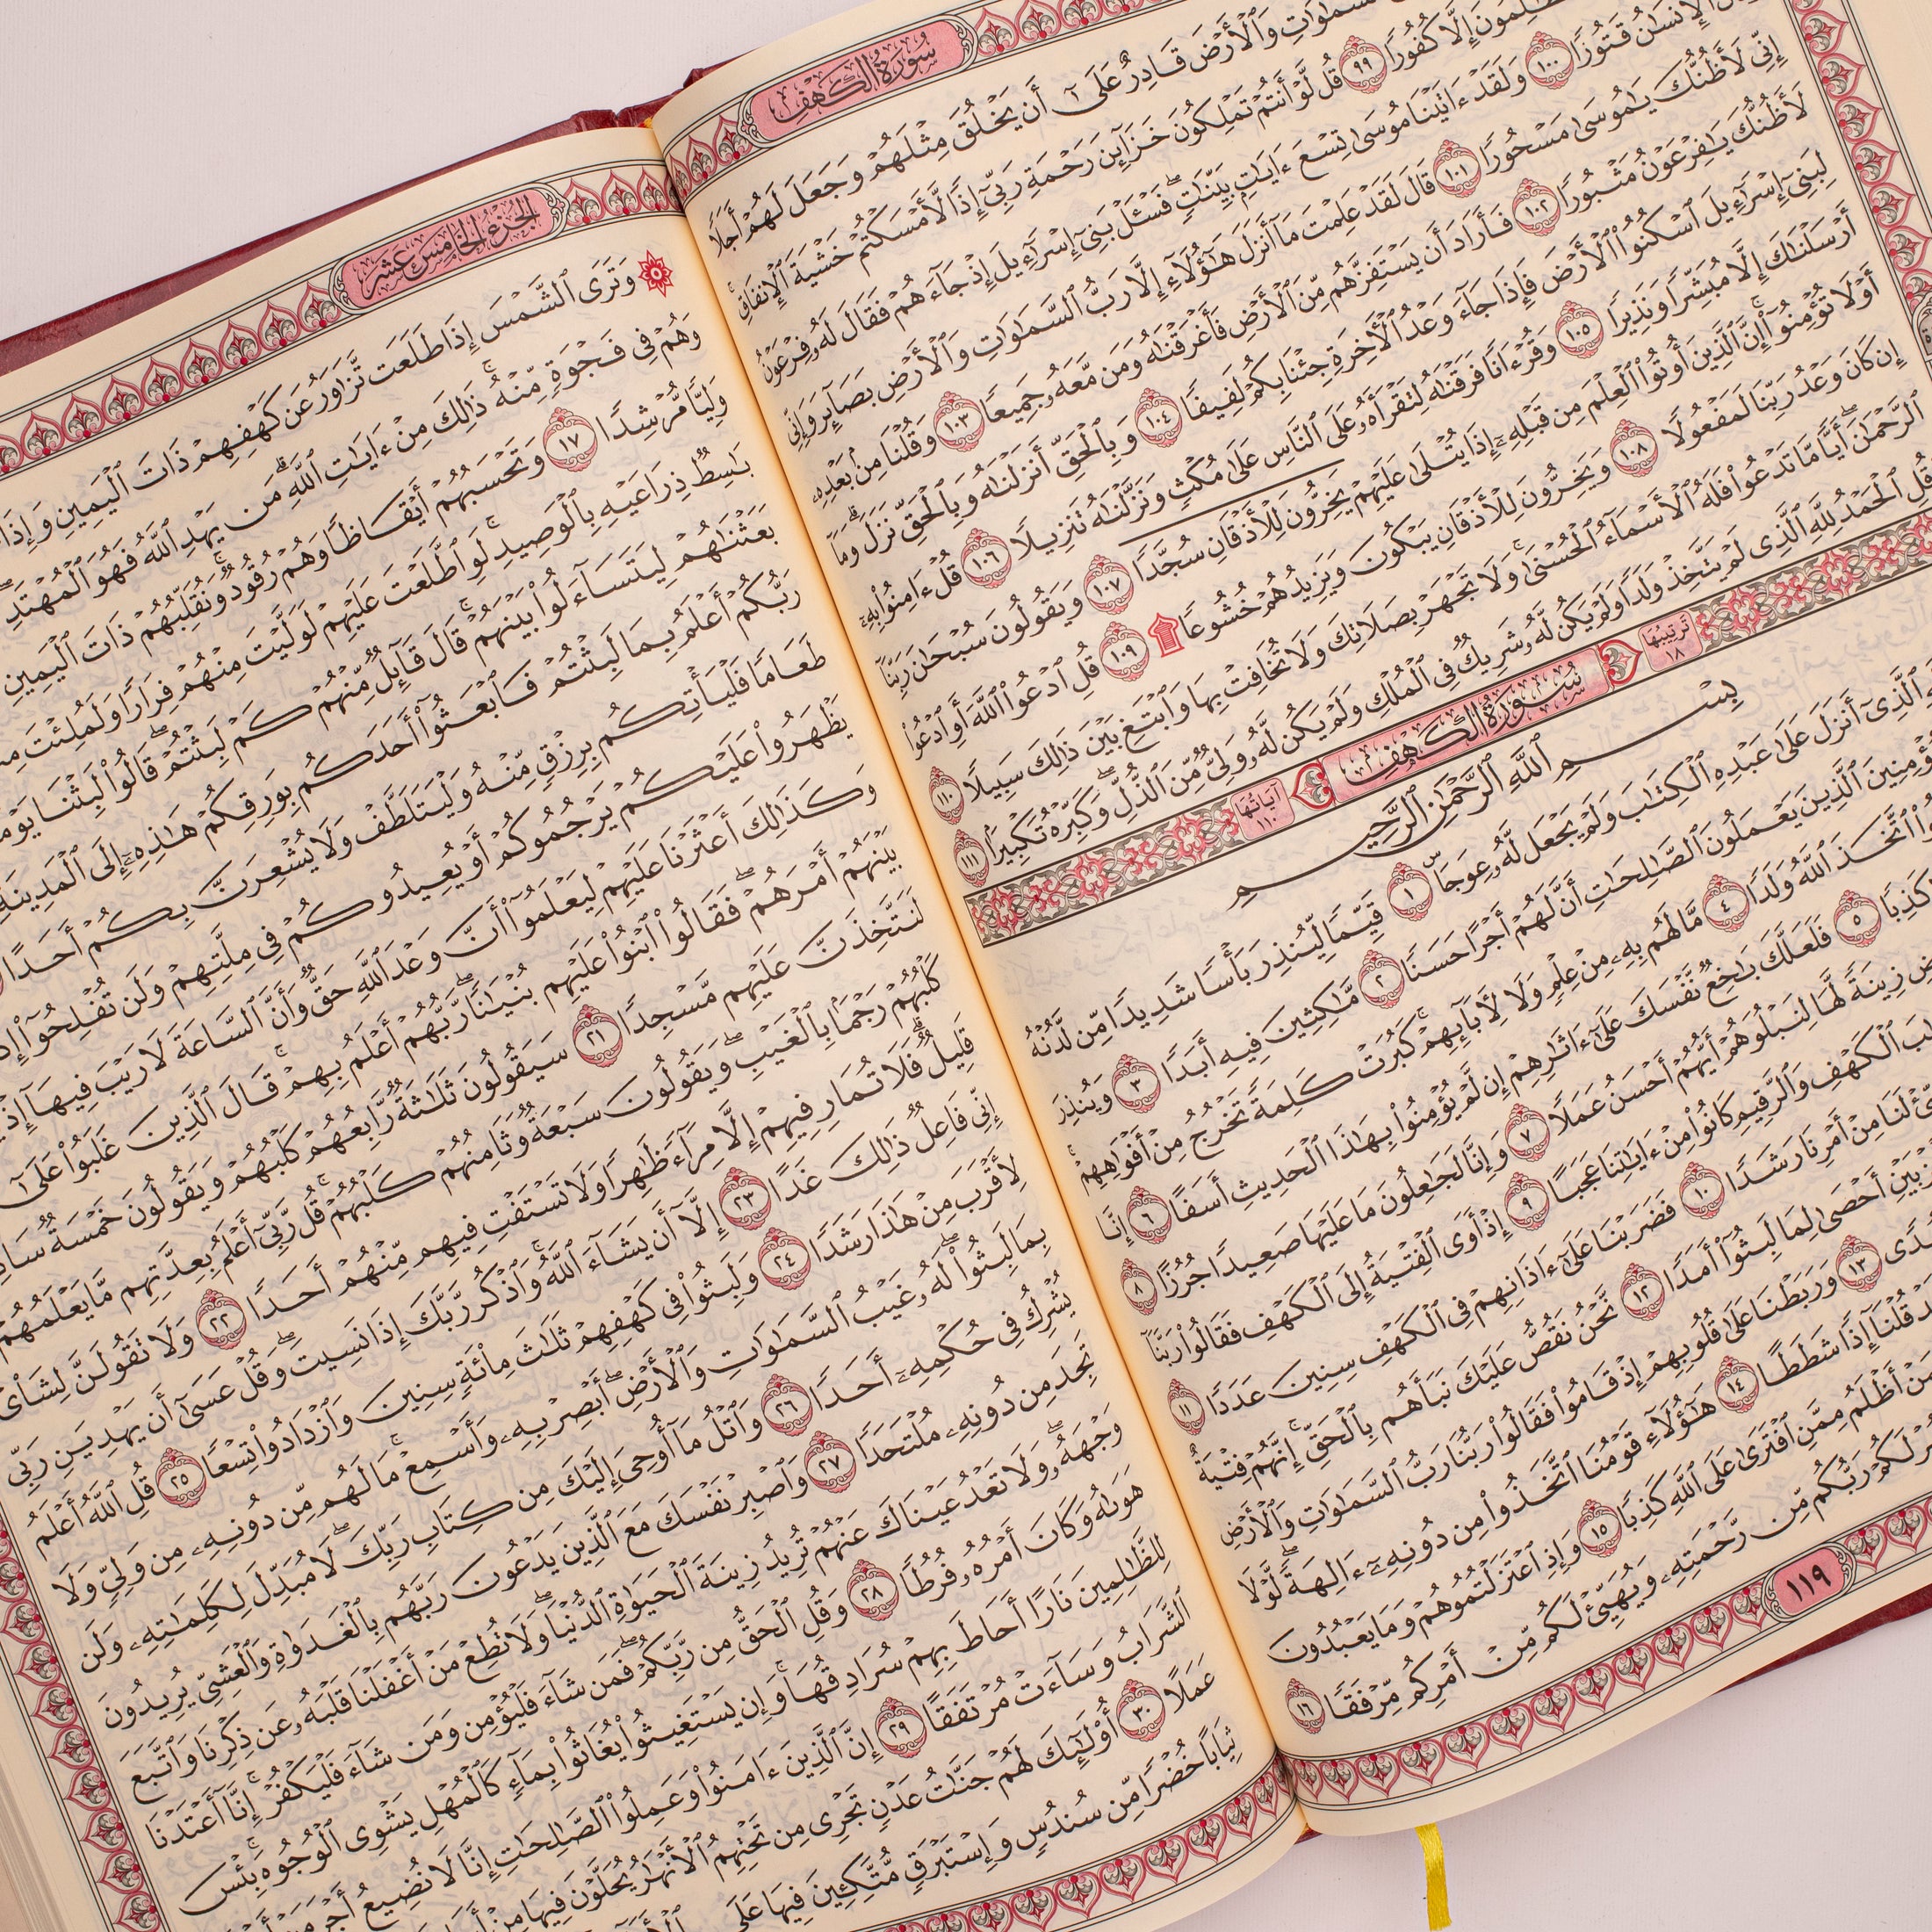 سُورَةُ الكَهْفِ
سَمَٰوَٰتِ وَٱلْأَرْضَ قَادِرٌ عَلَىٰٓ أَن يَخْلُقَ مِثْلَهُمْ وَجَعَلَ لَهُمْ أَجَلًا
ظَّٰلِمُونَ إِلَّا كُفُورًا ٩٩ قُل لَّوْ أَنتُمْ تَمْلِكُونَ خَزَآئِنَ رَحْمَةِ رَبِّىٓ إِذًا لَّأَمْسَكْتُمْ خَشْيَةَ ٱلْإِنفَاقِ
ٱلْإِنسَٰنُ قَتُورًا ١٠٠ وَلَقَدْ ءَاتَيْنَا مُوسَىٰ تِسْعَ ءَايَٰتٍۭ بَيِّنَٰتٍ فَسْـَٔلْ بَنِىٓ إِسْرَٰٓءِيلَ إِذْ جَآءَهُمْ فَقَالَ لَهُۥ فِرْعَوْنُ
إِنِّى لَأَظُنُّكَ يَٰمُوسَىٰ مَسْحُورًا ١٠١ قَالَ لَقَدْ عَلِمْتَ مَآ أَنزَلَ هَٰٓؤُلَآءِ إِلَّا رَبُّ ٱلسَّمَٰوَٰتِ وَٱلْأَرْضِ بَصَآئِرَ وَإِنِّى
لَأَظُنُّكَ يَٰفِرْعَوْنُ مَثْبُورًا ١٠٢ فَأَرَادَ أَن يَسْتَفِزَّهُم مِّنَ ٱلْأَرْضِ فَأَغْرَقْنَٰهُ وَمَن مَّعَهُۥ جَمِيعًا ١٠٣ وَقُلْنَا مِنۢ بَعْدِهِۦ
لِبَنِىٓ إِسْرَٰٓءِيلَ ٱسْكُنُوا۟ ٱلْأَرْضَ فَإِذَا جَآءَ وَعْدُ ٱلْأَخِرَةِ جِئْنَا بِكُمْ لَفِيفًا ١٠٤ وَبِٱلْحَقِّ أَنزَلْنَٰهُ وَبِٱلْحَقِّ نَزَلَ وَمَآ
أَرْسَلْنَٰكَ إِلَّا مُبَشِّرًا وَنَذِيرًا ١٠٥ وَقُرْءَانًا فَرَقْنَٰهُ لِتَقْرَأَهُۥ عَلَى ٱلنَّاسِ عَلَىٰ مُكْثٍ وَنَزَّلْنَٰهُ تَنزِيلًا ١٠٦ قُلْ ءَامِنُوا۟ بِهِۦٓ
أَوْ لَا تُؤْمِنُوٓا۟ إِنَّ ٱلَّذِينَ أُوتُوا۟ ٱلْعِلْمَ مِن قَبْلِهِۦٓ إِذَا يُتْلَىٰ عَلَيْهِمْ يَخِرُّونَ لِلْأَذْقَانِ سُجَّدًا ١٠٧ وَيَقُولُونَ سُبْحَٰنَ رَبِّنَآ
إِن كَانَ وَعْدُ رَبِّنَا لَمَفْعُولًا ١٠٨ وَيَخِرُّونَ لِلْأَذْقَانِ يَبْكُونَ وَيَزِيدُهُمْ خُشُوعًا ۩ ١٠٩ قُلِ ٱدْعُوا۟ ٱللَّهَ أَوِ ٱدْعُوا۟
ٱلرَّحْمَٰنَ أَيًّا مَّا تَدْعُوا۟ فَلَهُ ٱلْأَسْمَآءُ ٱلْحُسْنَىٰ وَلَا تَجْهَرْ بِصَلَاتِكَ وَلَا تُخَافِتْ بِهَا وَٱبْتَغِ بَيْنَ ذَٰلِكَ سَبِيلًا ١١٠
وَقُلِ ٱلْحَمْدُ لِلَّهِ ٱلَّذِى لَمْ يَتَّخِذْ وَلَدًا وَلَمْ يَكُن لَّهُۥ شَرِيكٌ فِى ٱلْمُلْكِ وَلَمْ يَكُن لَّهُۥ وَلِىٌّ مِّنَ ٱلذُّلِّ وَكَبِّرْهُ تَكْبِيرًۢا ١١١
تَرْتِيبُهَا ١٨ سُورَةُ الكَهْفِ آيَاتُهَا ١١٠
بِسْمِ ٱللَّهِ ٱلرَّحْمَٰنِ ٱلرَّحِيمِ
ٱلَّذِىٓ أَنزَلَ عَلَىٰ عَبْدِهِ ٱلْكِتَٰبَ وَلَمْ يَجْعَل لَّهُۥ عِوَجَا ١ قَيِّمًا لِّيُنذِرَ بَأْسًا شَدِيدًا مِّن لَّدُنْهُ
ٱلَّذِينَ يَعْمَلُونَ ٱلصَّٰلِحَٰتِ أَنَّ لَهُمْ أَجْرًا حَسَنًا ٢ مَّٰكِثِينَ فِيهِ أَبَدًا ٣ وَيُنذِرَ
ٱتَّخَذَ ٱللَّهُ وَلَدًا ٤ مَّا لَهُم بِهِۦ مِنْ عِلْمٍ وَلَا لِأَبَآئِهِمْ كَبُرَتْ كَلِمَةً تَخْرُجُ مِنْ أَفْوَٰهِهِمْ
كَذِبًا ٥ فَلَعَلَّكَ بَٰخِعٌ نَّفْسَكَ عَلَىٰٓ ءَاثَٰرِهِمْ إِن لَّمْ يُؤْمِنُوا۟ بِهَٰذَا ٱلْحَدِيثِ أَسَفًا ٦ إِنَّا
زِينَةً لَّهَا لِنَبْلُوَهُمْ أَيُّهُمْ أَحْسَنُ عَمَلًا ٧ وَإِنَّا لَجَٰعِلُونَ مَا عَلَيْهَا صَعِيدًا جُرُزًا ٨
ٱلْكَهْفِ وَٱلرَّقِيمِ كَانُوا۟ مِنْ ءَايَٰتِنَا عَجَبًا ٩ إِذْ أَوَى ٱلْفِتْيَةُ إِلَى ٱلْكَهْفِ فَقَالُوا۟ رَبَّنَآ
لَنَا مِنْ أَمْرِنَا رَشَدًا ١٠ فَضَرَبْنَا عَلَىٰٓ ءَاذَانِهِمْ فِى ٱلْكَهْفِ سِنِينَ عَدَدًا ١١
أَحْصَىٰ لِمَا لَبِثُوٓا۟ أَمَدًا ١٢ نَّحْنُ نَقُصُّ عَلَيْكَ نَبَأَهُم بِٱلْحَقِّ إِنَّهُمْ فِتْيَةٌ
١٣ وَرَبَطْنَا عَلَىٰ قُلُوبِهِمْ إِذْ قَامُوا۟ فَقَالُوا۟ رَبُّنَا رَبُّ ٱلسَّمَٰوَٰتِ وَٱلْأَرْضِ
قُلْنَآ إِذًا شَطَطًا ١٤ هَٰٓؤُلَآءِ قَوْمُنَا ٱتَّخَذُوا۟ مِن دُونِهِۦٓ ءَالِهَةً لَّوْلَا
أَظْلَمُ مِمَّنِ ٱفْتَرَىٰ عَلَى ٱللَّهِ كَذِبًا ١٥ وَإِذِ ٱعْتَزَلْتُمُوهُمْ وَمَا يَعْبُدُونَ
لَكُمْ رَبُّكُم مِّن رَّحْمَتِهِۦ وَيُهَيِّئْ لَكُم مِّنْ أَمْرِكُم مِّرْفَقًا ١٦
١١٩
الجُزْءُ الخَامِسَ عَشَرَ
وَتَرَى ٱلشَّمْسَ إِذَا طَلَعَت تَّزَٰوَرُ عَن كَهْفِهِمْ ذَاتَ ٱلْيَمِينِ وَإِذَا
وَهُمْ فِى فَجْوَةٍ مِّنْهُ ذَٰلِكَ مِنْ ءَايَٰتِ ٱللَّهِ مَن يَهْدِ ٱللَّهُ فَهُوَ ٱلْمُهْتَدِ
وَلِيًّا مُّرْشِدًا ١٧ وَتَحْسَبُهُمْ أَيْقَاظًا وَهُمْ رُقُودٌ وَنُقَلِّبُهُمْ ذَاتَ ٱلْيَمِينِ
بَٰسِطٌ ذِرَاعَيْهِ بِٱلْوَصِيدِ لَوِ ٱطَّلَعْتَ عَلَيْهِمْ لَوَلَّيْتَ مِنْهُمْ فِرَارًا وَلَمُلِئْتَ
بَعَثْنَٰهُمْ لِيَتَسَآءَلُوا۟ بَيْنَهُمْ قَالَ قَآئِلٌ مِّنْهُمْ كَمْ لَبِثْتُمْ قَالُوا۟ لَبِثْنَا يَوْمًا
رَبُّكُمْ أَعْلَمُ بِمَا لَبِثْتُمْ فَٱبْعَثُوٓا۟ أَحَدَكُم بِوَرِقِكُمْ هَٰذِهِۦٓ إِلَى ٱلْمَدِينَةِ
طَعَامًا فَلْيَأْتِكُم بِرِزْقٍ مِّنْهُ وَلْيَتَلَطَّفْ وَلَا يُشْعِرَنَّ بِكُمْ أَحَدًا
يَظْهَرُوا۟ عَلَيْكُمْ يَرْجُمُوكُمْ أَوْ يُعِيدُوكُمْ فِى مِلَّتِهِمْ وَلَن تُفْلِحُوٓا۟
وَكَذَٰلِكَ أَعْثَرْنَا عَلَيْهِمْ لِيَعْلَمُوٓا۟ أَنَّ وَعْدَ ٱللَّهِ حَقٌّ وَأَنَّ ٱلسَّاعَةَ لَا رَيْبَ فِيهَآ
بَيْنَهُمْ أَمْرَهُمْ فَقَالُوا۟ ٱبْنُوا۟ عَلَيْهِم بُنْيَٰنًا رَّبُّهُمْ أَعْلَمُ بِهِمْ قَالَ ٱلَّذِينَ غَلَبُوا۟ عَلَىٰٓ
لَنَتَّخِذَنَّ عَلَيْهِم مَّسْجِدًا ٢١ سَيَقُولُونَ ثَلَٰثَةٌ رَّابِعُهُمْ كَلْبُهُمْ وَيَقُولُونَ خَمْسَةٌ
كَلْبُهُمْ رَجْمًۢا بِٱلْغَيْبِ وَيَقُولُونَ سَبْعَةٌ وَثَامِنُهُمْ كَلْبُهُمْ قُل رَّبِّىٓ أَعْلَمُ بِعِدَّتِهِم مَّا يَعْلَمُهُمْ
قَلِيلٌ فَلَا تُمَارِ فِيهِمْ إِلَّا مِرَآءً ظَٰهِرًا وَلَا تَسْتَفْتِ فِيهِم مِّنْهُمْ أَحَدًا ٢٢ وَلَا تَقُولَنَّ لِشَا۟ىْءٍ
إِنِّى فَاعِلٌ ذَٰلِكَ غَدًا ٢٣ إِلَّآ أَن يَشَآءَ ٱللَّهُ وَٱذْكُر رَّبَّكَ إِذَا نَسِيتَ وَقُلْ عَسَىٰٓ أَن يَهْدِيَنِ رَبِّى
لِأَقْرَبَ مِنْ هَٰذَا رَشَدًا ٢٤ وَلَبِثُوا۟ فِى كَهْفِهِمْ ثَلَٰثَ مِا۟ئَةٍ سِنِينَ وَٱزْدَادُوا۟ تِسْعًا ٢٥ قُلِ ٱللَّهُ أَعْلَمُ
بِمَا لَبِثُوا۟ لَهُۥ غَيْبُ ٱلسَّمَٰوَٰتِ وَٱلْأَرْضِ أَبْصِرْ بِهِۦ وَأَسْمِعْ مَا لَهُم مِّن دُونِهِۦ مِن وَلِىٍّ وَلَا
يُشْرِكُ فِى حُكْمِهِۦٓ أَحَدًا ٢٦ وَٱتْلُ مَآ أُوحِىَ إِلَيْكَ مِن كِتَابِ رَبِّكَ لَا مُبَدِّلَ لِكَلِمَٰتِهِۦ وَلَن
تَجِدَ مِن دُونِهِۦ مُلْتَحَدًا ٢٧ وَٱصْبِرْ نَفْسَكَ مَعَ ٱلَّذِينَ يَدْعُونَ رَبَّهُم بِٱلْغَدَوٰةِ وَٱلْعَشِىِّ يُرِيدُونَ
وَجْهَهُۥ وَلَا تَعْدُ عَيْنَاكَ عَنْهُمْ تُرِيدُ زِينَةَ ٱلْحَيَوٰةِ ٱلدُّنْيَا وَلَا تُطِعْ مَنْ أَغْفَلْنَا قَلْبَهُۥ عَن ذِكْرِنَا وَٱتَّبَعَ
هَوَىٰهُ وَكَانَ أَمْرُهُۥ فُرُطًا ٢٨ وَقُلِ ٱلْحَقُّ مِن رَّبِّكُمْ فَمَن شَآءَ فَلْيُؤْمِن وَمَن شَآءَ فَلْيَكْفُرْ إِنَّآ أَعْتَدْنَا
لِلظَّٰلِمِينَ نَارًا أَحَاطَ بِهِمْ سُرَادِقُهَا وَإِن يَسْتَغِيثُوا۟ يُغَاثُوا۟ بِمَآءٍ كَٱلْمُهْلِ يَشْوِى ٱلْوُجُوهَ بِئْسَ
ٱلشَّرَابُ وَسَآءَتْ مُرْتَفَقًا ٢٩ إِنَّ ٱلَّذِينَ ءَامَنُوا۟ وَعَمِلُوا۟ ٱلصَّٰلِحَٰتِ إِنَّا لَا نُضِيعُ أَجْرَ
عَمَلًا ٣٠ أُو۟لَٰٓئِكَ لَهُمْ جَنَّٰتُ عَدْنٍ تَجْرِى مِن تَحْتِهِمُ ٱلْأَنْهَٰرُ يُحَلَّوْنَ فِيهَا مِنْ
ثِيَابًا خُضْرًا مِّن سُندُسٍ وَإِسْتَبْرَقٍ مُّتَّكِـِٔينَ فِيهَا عَلَى